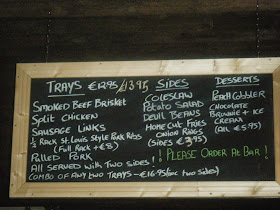 TRAYS €12.95 / 13.95
SMOKED BEEF BRISKET
SPLIT CHICKEN
SAUSAGE LINKS
½ RACK ST. LOUIS STYLE PORK RIBS
(FULL RACK +€8)
PULLED PORK
ALL SERVED WITH TWO SIDES!
COMBO OF ANY TWO TRAYS - €16.95 (inc two sides)
SIDES
COLESLAW
POTATO SALAD
DEVIL BEANS
HOME CUT FRIES
ONION RINGS
(SIDES €3.95)
DESSERTS
PEACH COBBLER
CHOCOLATE
BROWNIE + ICE
CREAM
(ALL €5.95)
! PLEASE ORDER AT BAR !